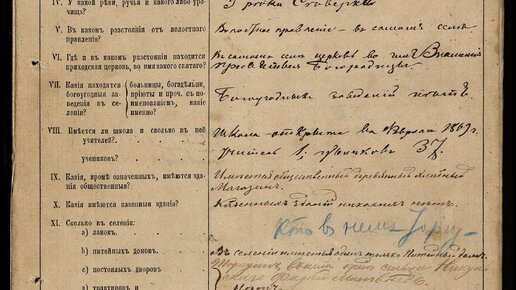 IV. У какой рѣки, ручья и какого либо уро-
чища?
У рѣки
V. Въ какомъ разстояніи отъ волостнаго
правленія?
Волостное правленіе – въ самомъ селѣ
VI. Гдѣ и въ какомъ разстояніи находится
приходская церковь, во имя какого святаго?
Въ самомъ селѣ церковь во имя Знаменія
Пресвятыя Богородицы.
VII. Какія находятся больницы, богадѣльни,
богоугодныя за- пріюты и проч. съ по-
веденія въ се- именованіемъ, какія
леніи? именно?
Богоугодныхъ заведеній нѣтъ.
VIII. Имѣется ли школа и сколько въ ней
учителей?.
учениковъ?
Школа открыта въ 1869 г.
учитель 1, учениковъ 37.
IX. Какія, кромѣ означенныхъ, имѣются зда-
нія общественныя?
Имѣется общественный деревянный хлѣбный
Магазинъ.
X. Какія имѣются казенныя зданія?
Казенныхъ зданій никакихъ нѣтъ.
XI. Сколько въ селеніи:
а) лавокъ.
Кто въ немъ торгу-
б) питейныхъ домовъ.
Въ селеніи имѣется одинъ только питейный домъ.
в) постоялыхъ дворовъ
г) трактировъ и
нѣтъ